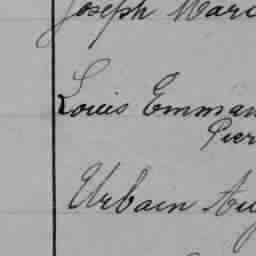 Joseph Mari
Louis Emman
Pier
Urbain Au